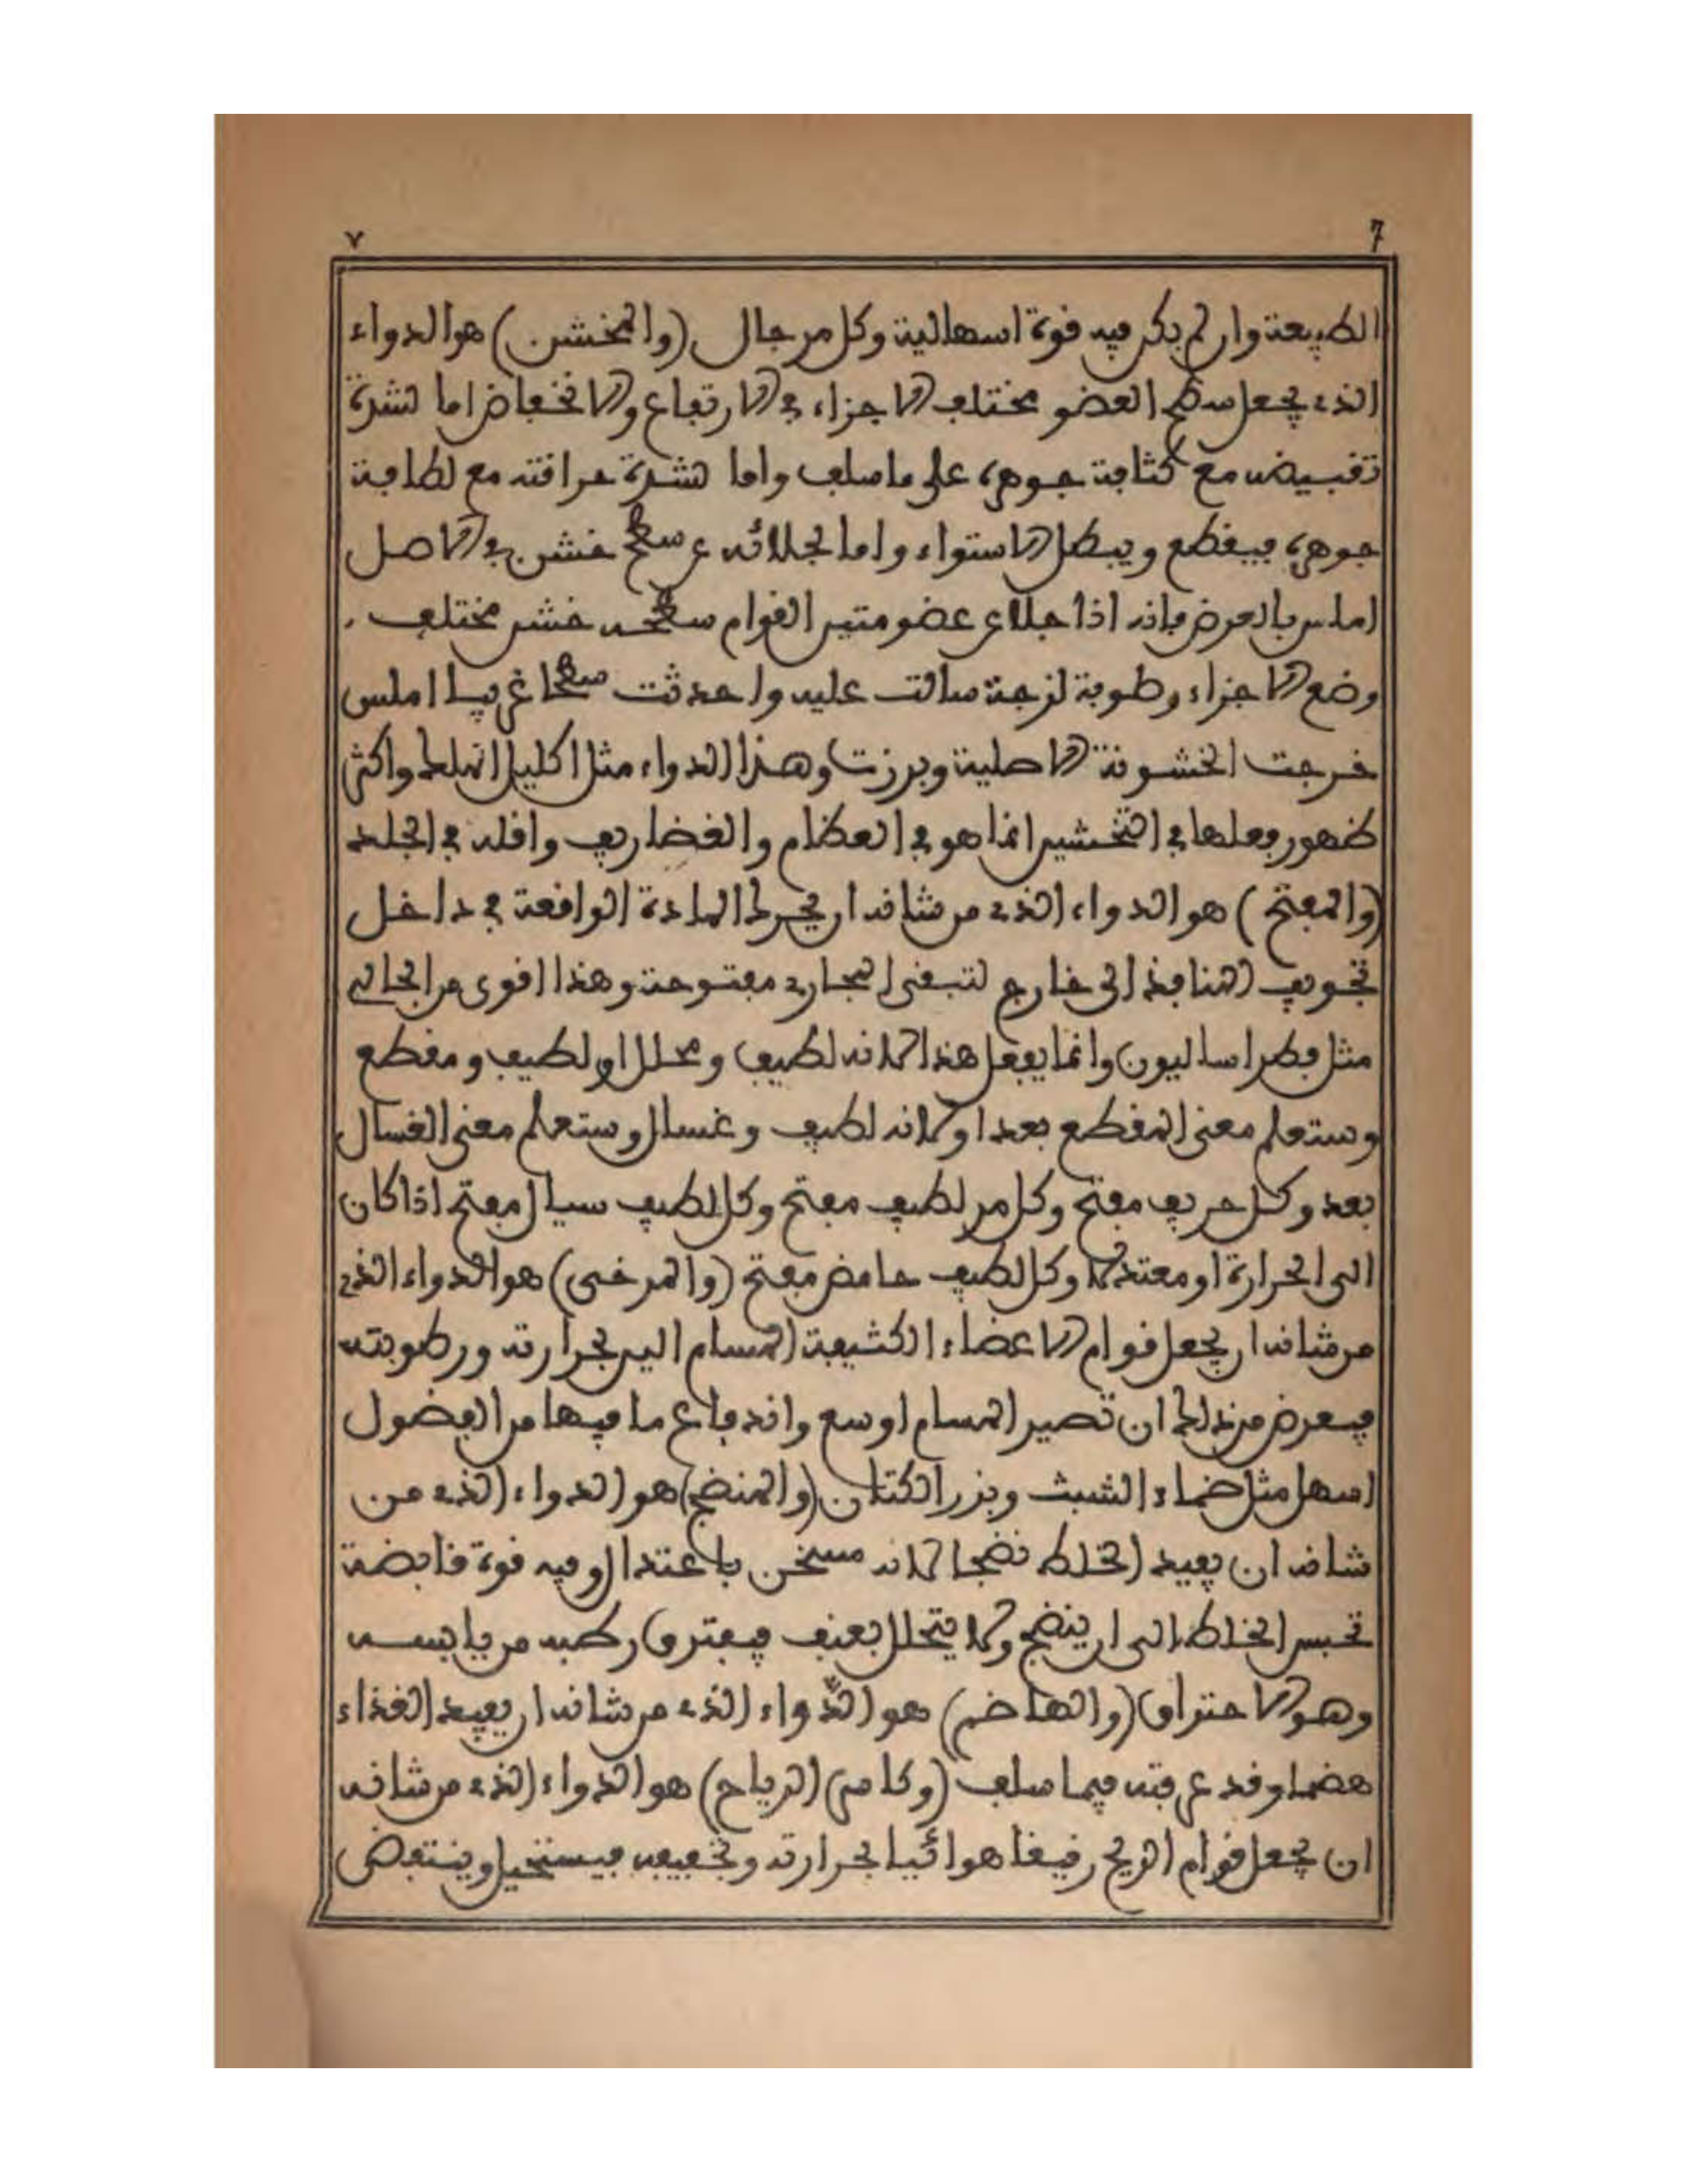 ٧ 7
الطبيعة وان لم يكن فيه قوة اسهالية وكل مر جال (والمخشن) هو الدواء
الذي يجعل سطح العضو مختلف الاجزاء في الارتفاع والانخفاض اما لشدة
تقبيضه مع كثافة جوهره على ما سلف واما لشدة حرافته مع لطافة
جوهره فيقطع ويبطل الاستواء واما لجلائه عن سطح خشن في الاصل
املس بالعرض فانه اذا جلا عن عضو متين القوام سطحه خشن مختلف
وضع الاجزاء رطوبة لزجة سالت عليه واحدثت سطحا غريبا املس
خرجت الخشونة الاصلية وبرزت وهذا الدواء مثل اكليل الملك واكثر
ظهور فعلها في التخشين انما هو في العظام والغضاريف واقله في الجلد
(والمفتح) هو الدواء الذي من شانه ان يحرك المادة الواقعة في داخل
تجويف المنافذ الى خارج لتبقى المجاري مفتوحة وهذا اقوى من الجالي
مثل فطراساليون وانما يفعل هذا لانه لطيف ومحلل او لطيف ومقطع
وستعلم معنى المقطع بعد او لانه لطيف وغسال وستعلم معنى الغسال
بعد وكل حريف مفتح وكل مر لطيف مفتح وكل لطيف سيال مفتح اذا كان
الى الحرارة او معتدلا وكل لطيف حامض مفتح (والمرخى) هو الدواء الذي
من شانه ان يجعل قوام الاعضاء الكثيفة المسام الين بحرارته ورطوبته
فيعرض من ذلك ان تصير المسام اوسع واندفاع ما فيها من الفضول
اسهل مثل ضماد الشبث وبزر الكتان (والمنضج) هو الدواء الذي من
شانه ان يفيد الخلط نضجا لانه مسخن باعتدال وفيه قوة قابضة
تحبس الخلط الى ان ينضج ولا يتحلل بعنف فيفترق رطبه من يابسه
وهو الاحتراق (والهاضم) هو الدواء الذي من شانه ان يفيد الغذاء
هضما وقد عرفته فيما سلف (وكاسر الرياح) هو الدواء الذي من شانه
ان يجعل قوام الريح رقيقا هوائيا بحرارته وتجفيفه فيستحيل وينتفض